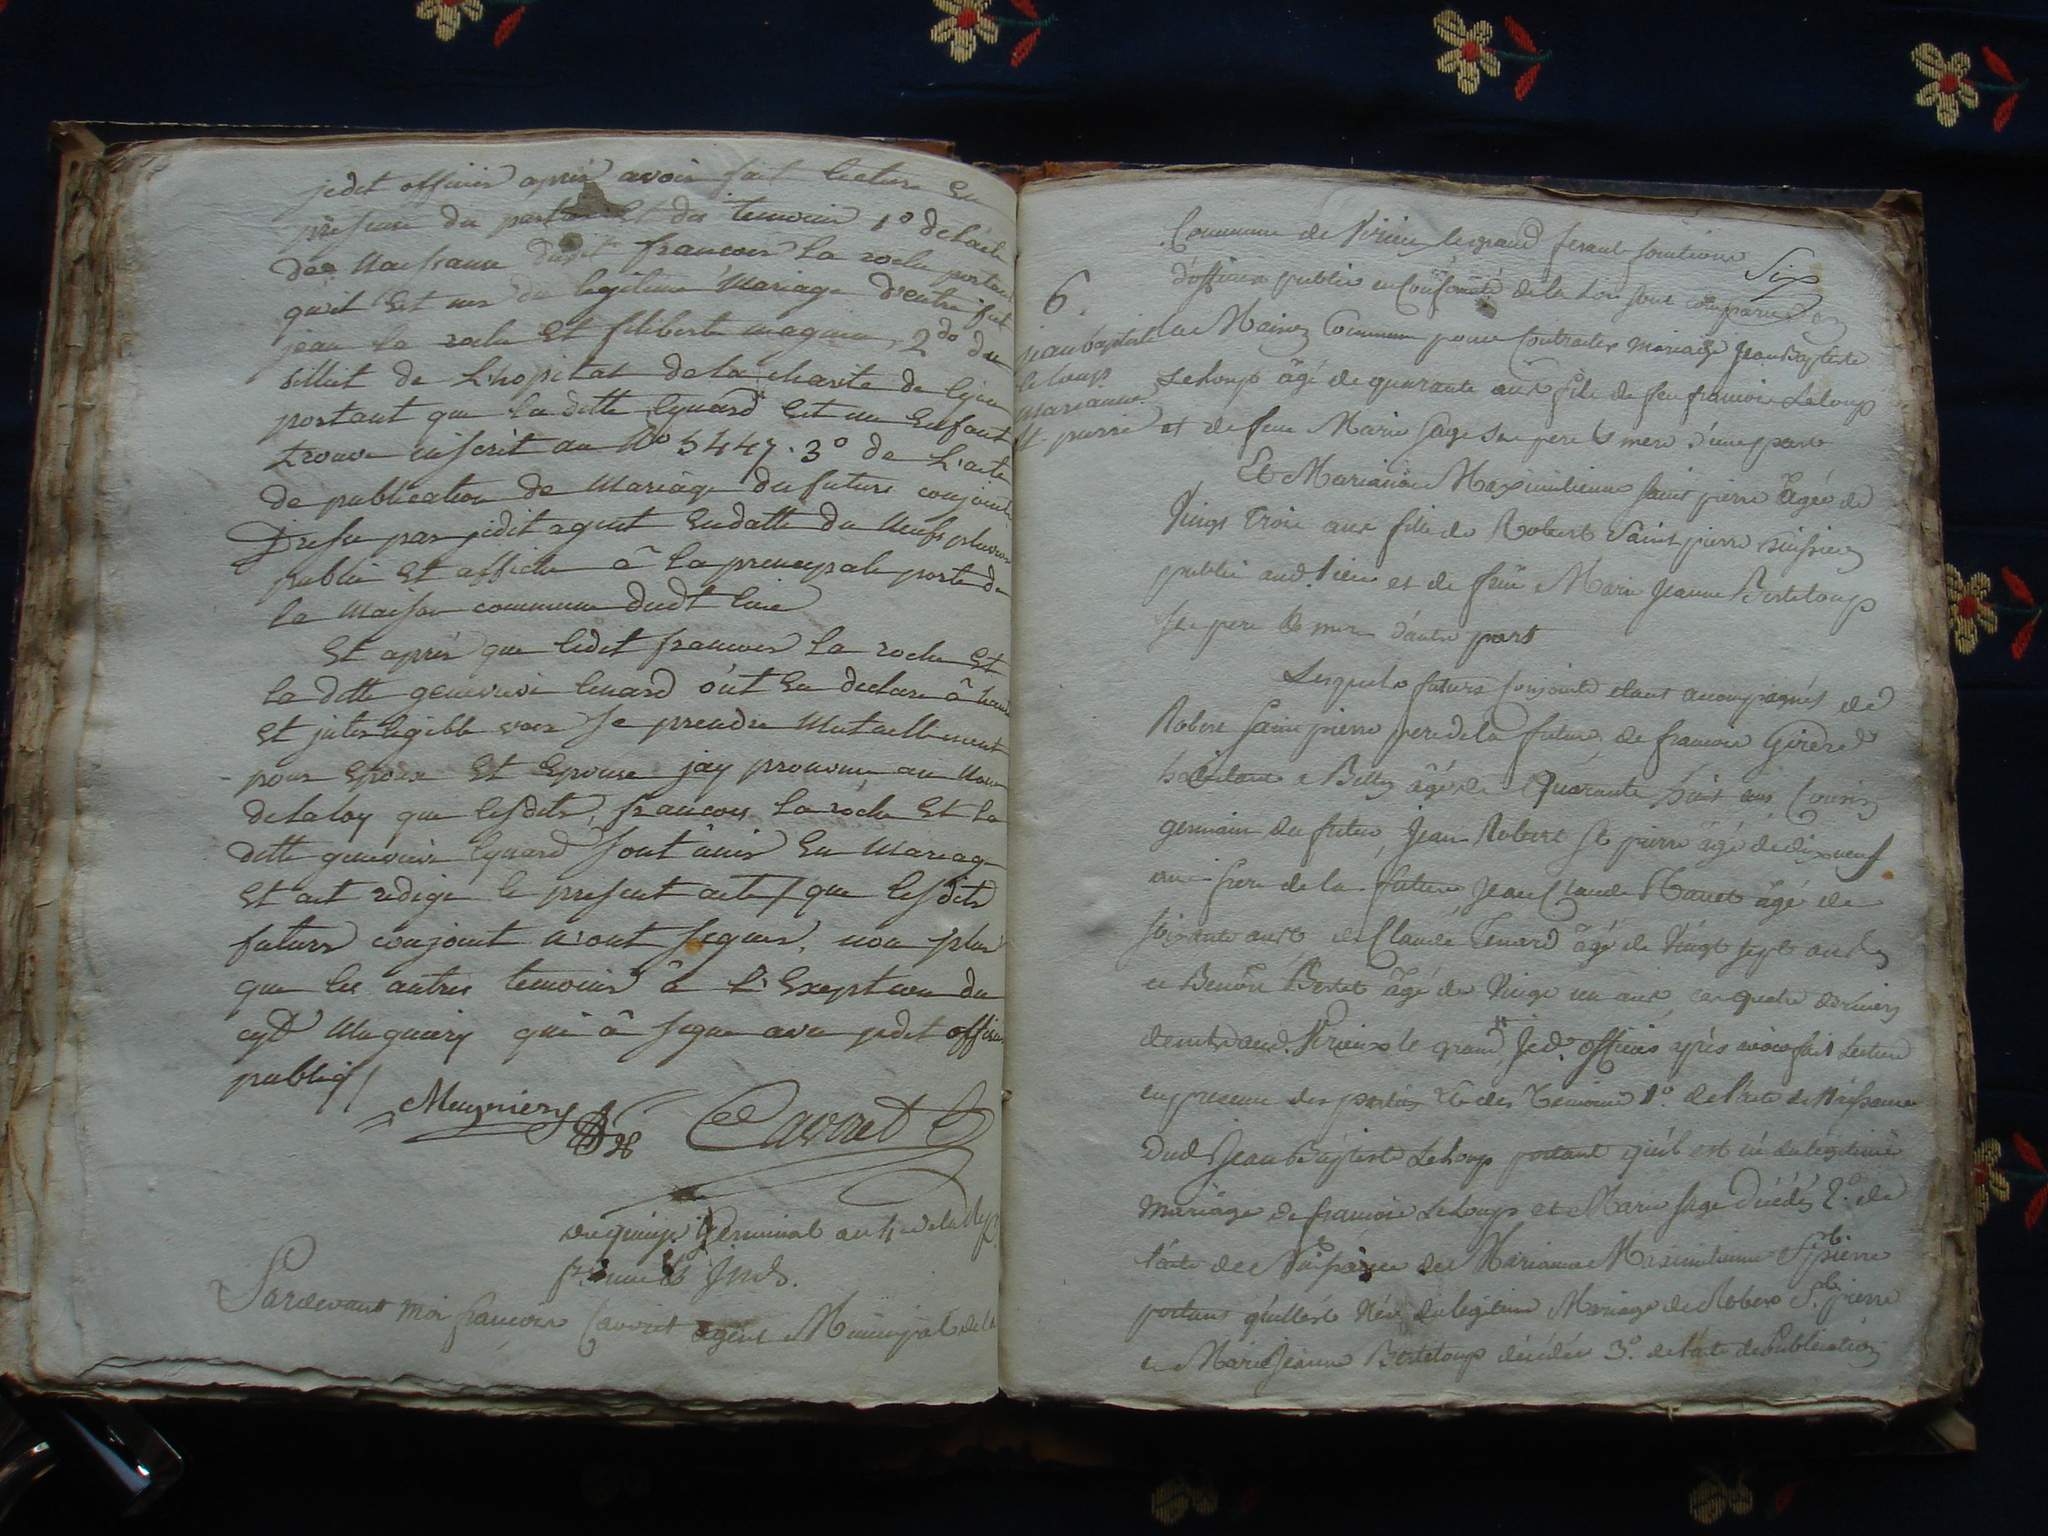 jedit officier après avoir fait lecture En
présence du partie Et des temoin 1º de l'acte
des Naissance dudit francois La roche portant
qu'il Est nes du legitime Mariage d'entre fut
jean la roche Et filiberte magnin, 2do du
billiet de L'hopital de la charite de lyon
portant que la ditte lynard Est un Enfant
trouve inscrit au Nº 5447. 3º de L'acte
de publication de Mariage du futurs conjoints
Dresse par jedit agent En datte du Neufs pluviose
publie Et affiche â la principale porte de
la Maison commune dudt lieu
Et après que ledit francois la roche Et
la ditte genevieve linard ont En declare â haute
Et inteligible voix Se prendre Mutuellement
pour Epoux Et Epouse jay prononce au Nom
de la loy que lesdits, francois La roche Et la
ditte genevieve lynard sont unis En Mariage
Et ait redige le present acte / que lesdits
futurs conjoint n'ont signer, non plus
que les autres temoins â l'Exeption du
cyt Mugniery qui â signe avec jedit officier
publiq /
Mugniery Cavoret
du quinze Germinal an 4 de la Rep.
francaise Inds.
Pardevant moi francois Cavoret agent Municipal de la
Six
Commune de Virieu legrand fesant fonctions
d'officier public en conformité de la Loi sont comparus en
6.
jean baptiste
le loup
marianne
st. pierre
la Maison Commune pour Contracter mariage Jean Baptiste
Leloup âgé de quarante ans fils de feu francois Leloup
et de feue Marie Sage Ses pere & mere d'une part
Et Marianne Maximilienne Saint pierre âgée de
Vingt Trois ans fille de Robert Saint pierre huissier
public aud. Lieu et de feüe Marie Jeanne Berteloup
Ses pere & mere d'autre part
Lesquels futurs conjoints etant accompagnés de
Robert Saint pierre pere de la future, de francois Girerd
habitant a Belley âgé de Quarante huit ans Cousin
germain du futur, Jean Robert St pierre âgé de dix neuf
ans frere de la future, Jean Claude Manet âgé de
soixante ans & de Claude Lenard âgé de Vingt sept ans &
et Benoît Bertet âgé de Vingt un ans, les quatre derniers
demt. aud. Virieux le grand, Jed. officier après avoir fait Lecture
en presence des parties & des Temoins 1º. de l'acte de Naissance
dud Jean Baptiste Leloup portant qu'il est né du legitime
mariage de francois Leloup et Marie Sage décédés 2.º de
l'acte de Naissance de Marianne Maximilienne St. pierre
portant qu'elle est Née du legitime Mariage de Robert St. pierre
et Marie Jeanne Berteloup décédée 3.º de l'acte de Publication